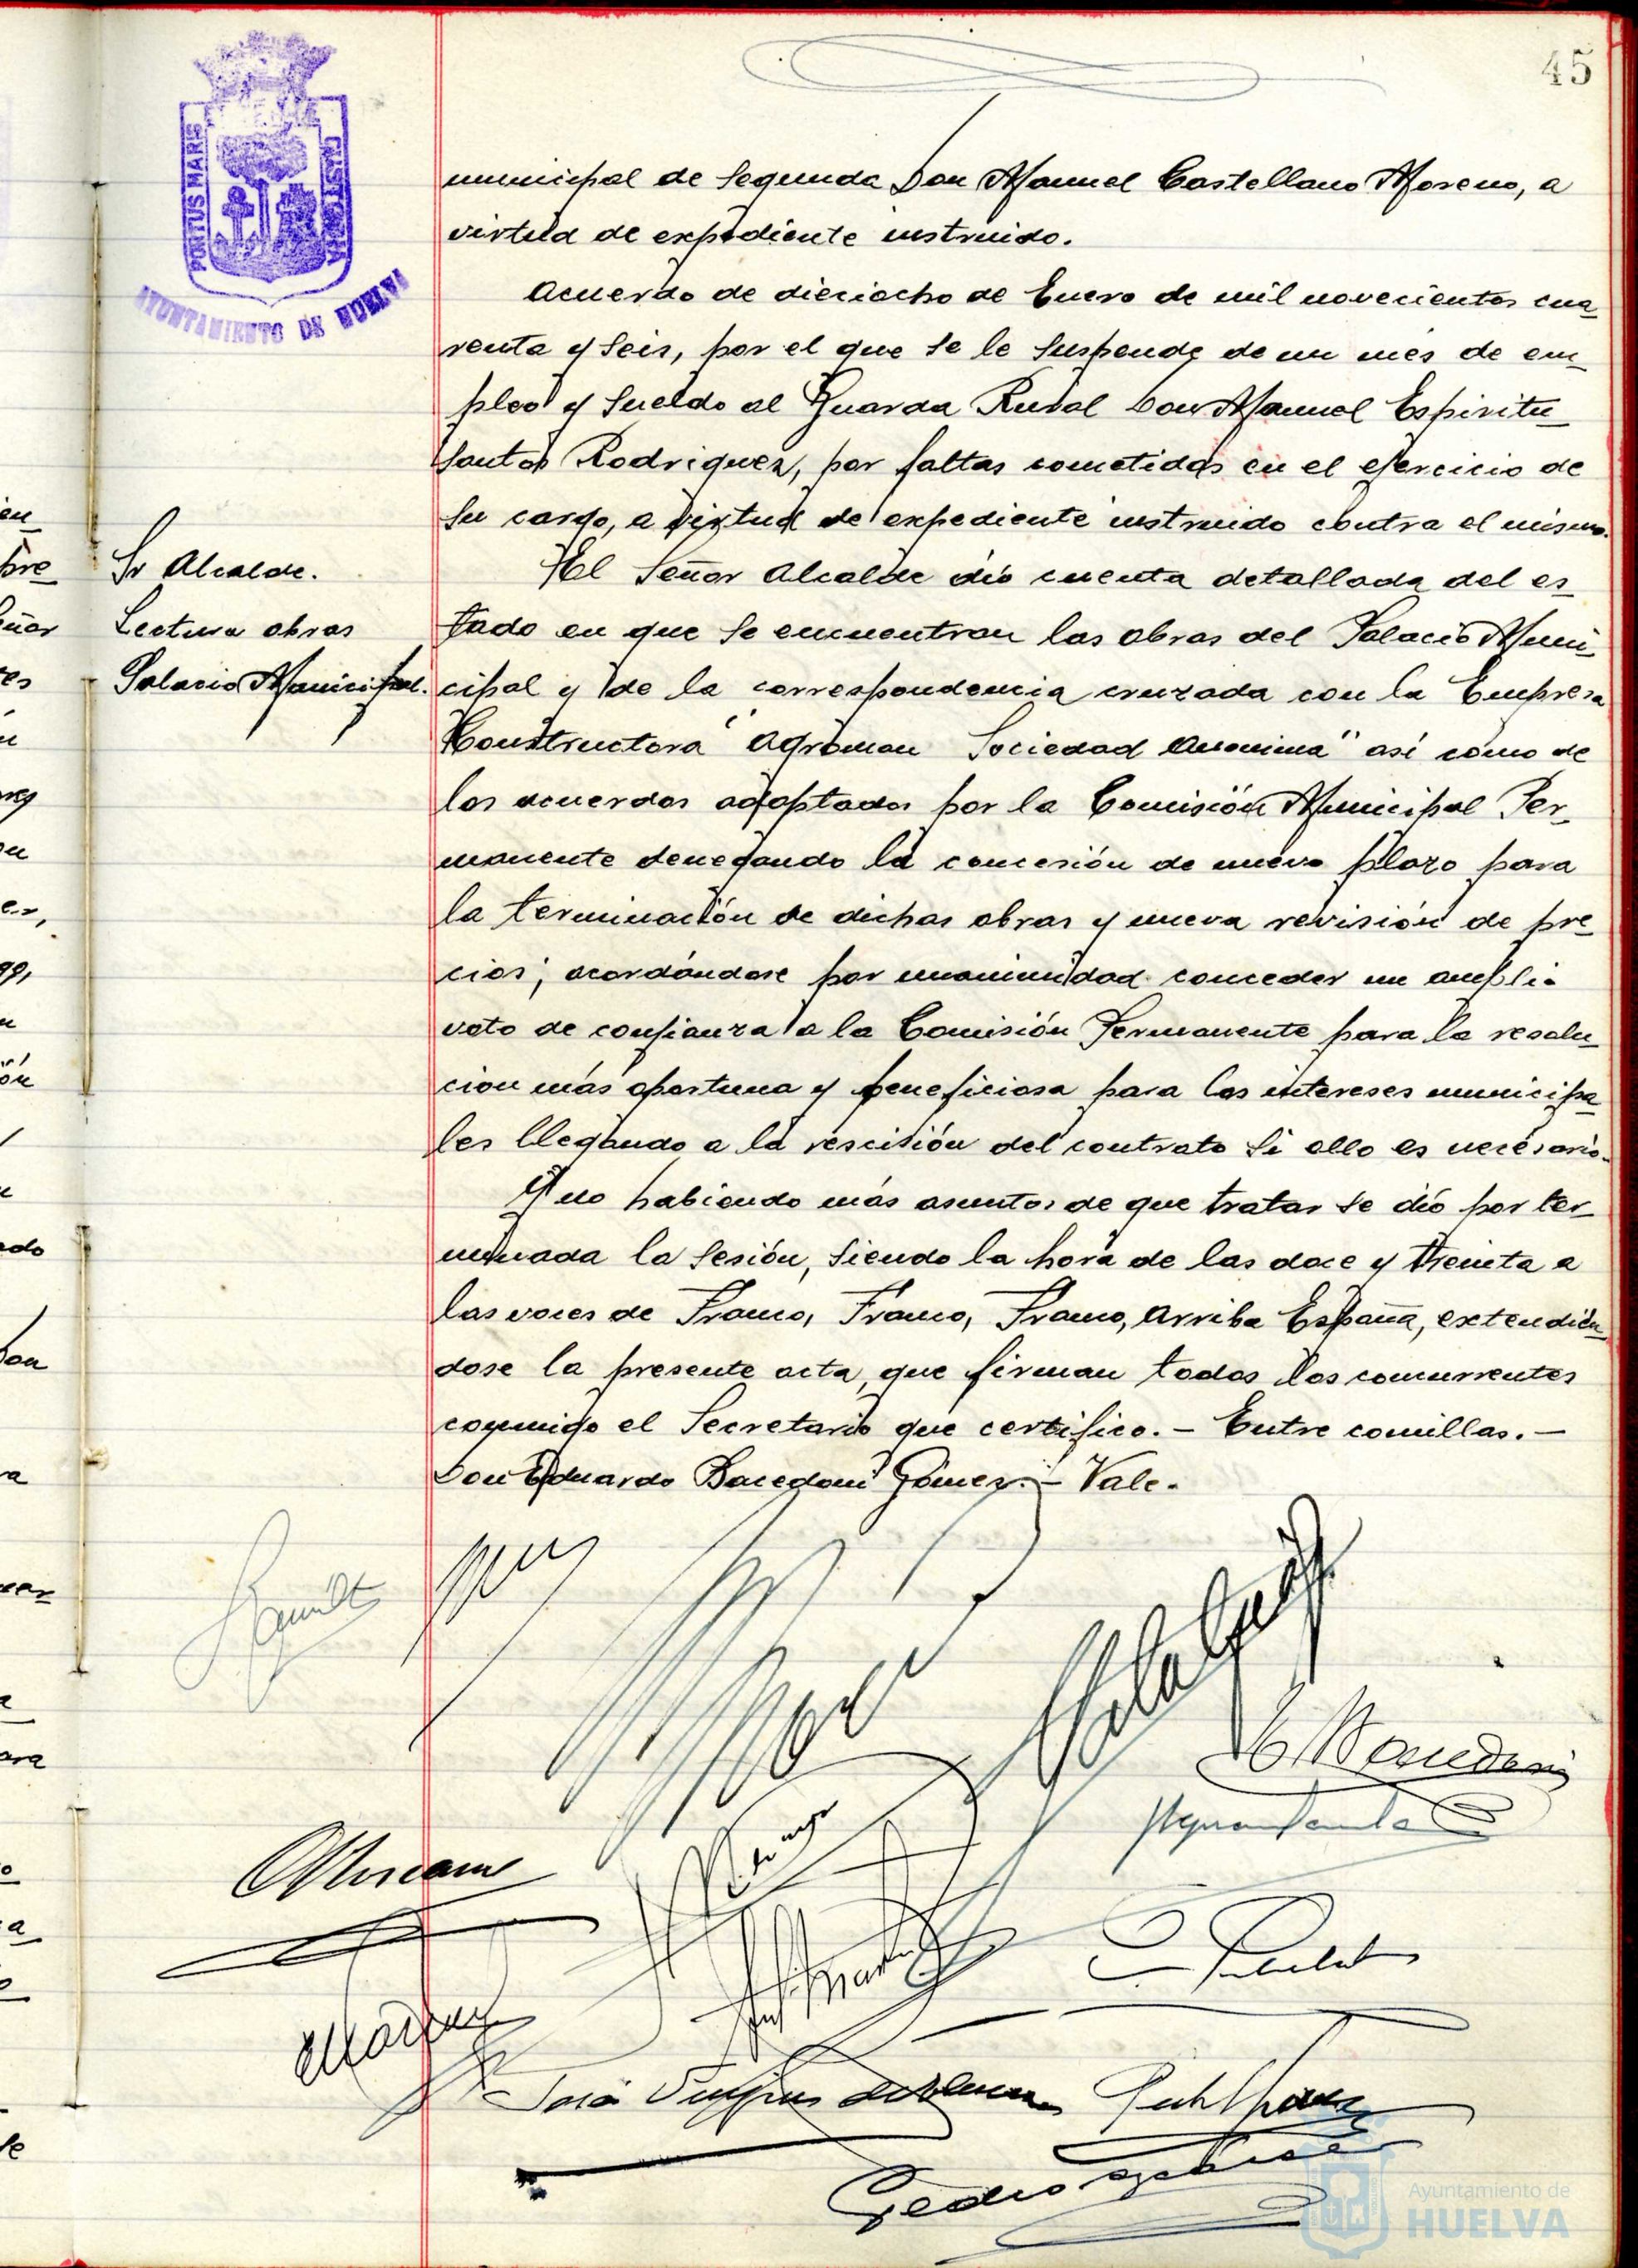 45
PORTUS MARIS
ET TERRAE CUSTODIA
AYUNTAMIENTO DE HUELVA
municipal de Segunda Don Manuel Castellano Moreno, a
virtud de expediente instruido.
Acuerdo de dieciocho de Enero de mil novecientos cua
renta y seis, por el que se le suspende de un mes de em
pleo y sueldo al Guarda Rural Don Manuel Espiritu
Santos Rodriguez, por faltas cometidas en el ejercicio de
su cargo, a virtud de expediente instruido contra el mismo.
Sr Alcalde.
Lectura obras
Palacio Municipal.
El Señor Alcalde dió cuenta detallada del es
tado en que se encuentran las obras del Palacio Muni
cipal y de la correspondencia cruzada con la Empresa
Constructora "Agroman Sociedad Anonima" así como de
los acuerdos adoptados por la Comisión Municipal Per
manente denegando la concesión de nuevo plazo para
la terminación de dichas obras y nueva revisión de pre
cios; acordándose por unanimidad conceder un amplio
voto de confianza a la Comisión Permanente para la resolu
cion más oportuna y beneficiosa para los intereses municipa
les llegando a la rescisión del contrato si ello es necesario.
Y no habiendo más asuntos de que tratar se dió por ter
minada la sesión, siendo la hora de las doce y treinta a
las voces de Franco, Franco, Franco, Arriba España, extendién
dose la presente acta, que firman todos los concurrentes
conmigo el Secretario que certifico. - Entre comillas. -
Don Eduardo Bacedoni Gómez. - Vale.
Pedro
Ayuntamiento de
HUELVA